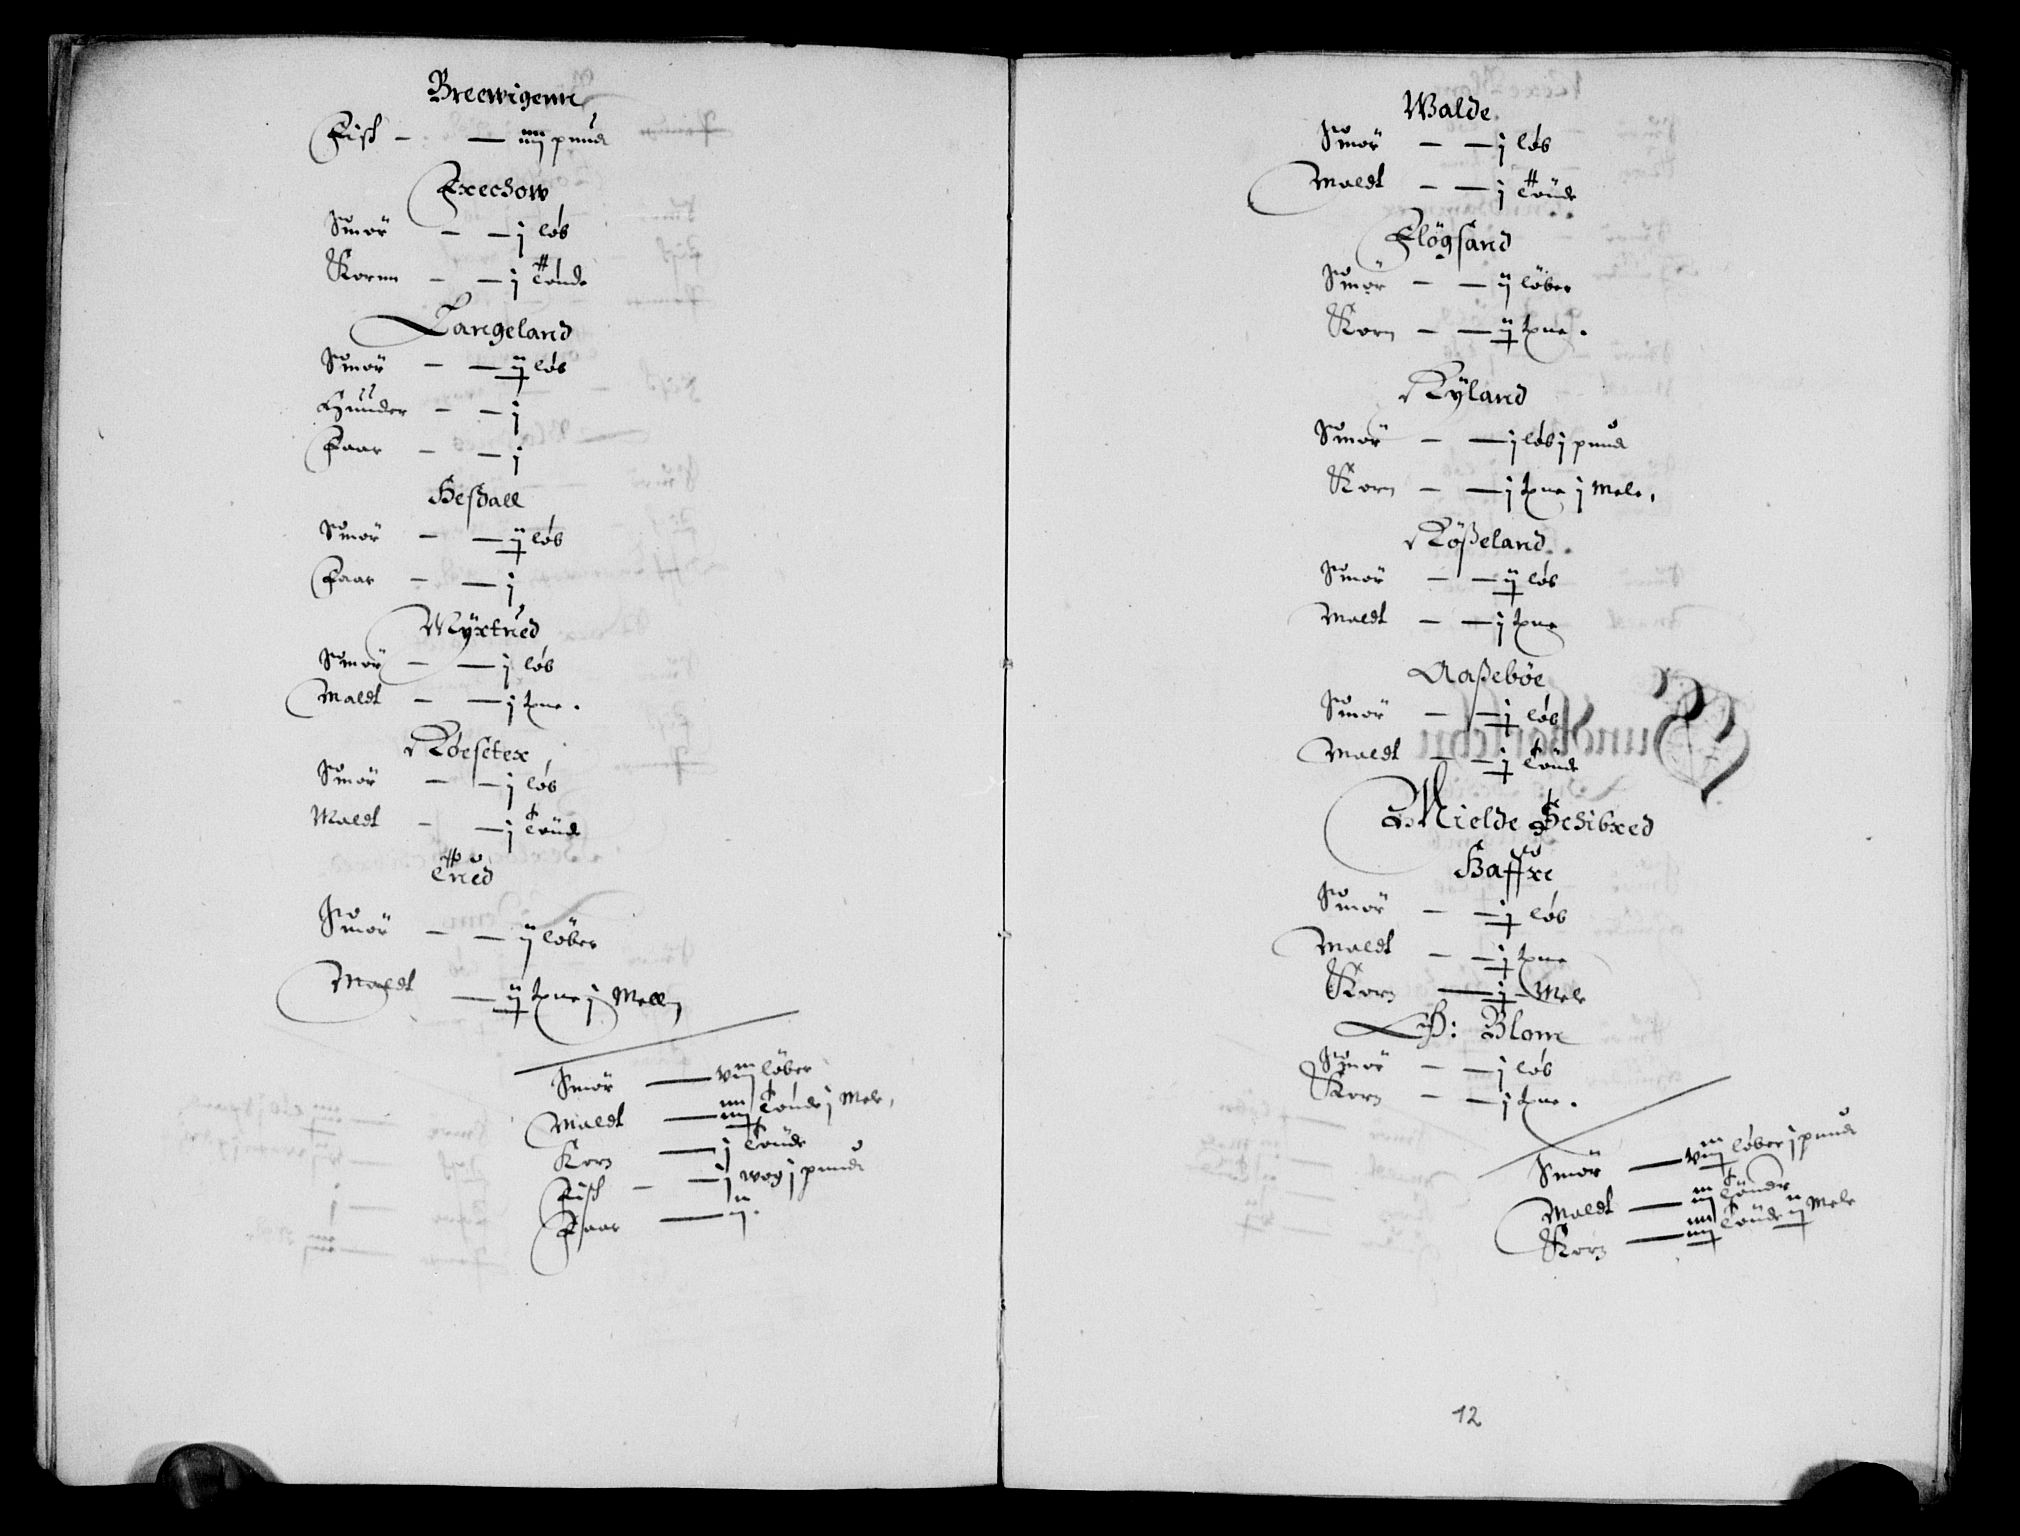 Breewigenn
Fisk — — iiij pund
Frechow
Smør — — j løb
Kornn — — j tønde
Langeland
Smör — — ij løb
Huuder — — j
Faar — — j
Heßdall
Smör — — ij løb
Faar — — j
Myxtued
Smör — — j løb
Maldt — — j tøne.
Röesetex
Smör — — j løb
Maldt — — j tönde
Tued
Smör — — ij løber
Maldt — ij tøne j Mell
Smör — viij løber
Maldt — iiij tønde j Mele,
Korn — j tønde
Fisk — — j wog j pund
Faar — ij.
Walde
Smör — — j løb
Maldt — — j tönde
Flögsand
Smör — — ij løber
Korn — — ij tøne.
Ryland
Smör — — j løb j pund
Korn — — j tøne j Mele,
Rößeland
Smör — — ij løb
Maldt — — j tøne
Aaßeböe
Smör — — j løb
Maldt — — j tønde
Mielde Schibred
Haffre
Smör — — j løb
Maldt — — j tøne
Korn — j Mele
H: Blom
Smör — — j løb
Korn — — j tøne.
Smör — viij løber j pund
Maldt — iij tönder
Korn — iiij tönde ij Mele
12